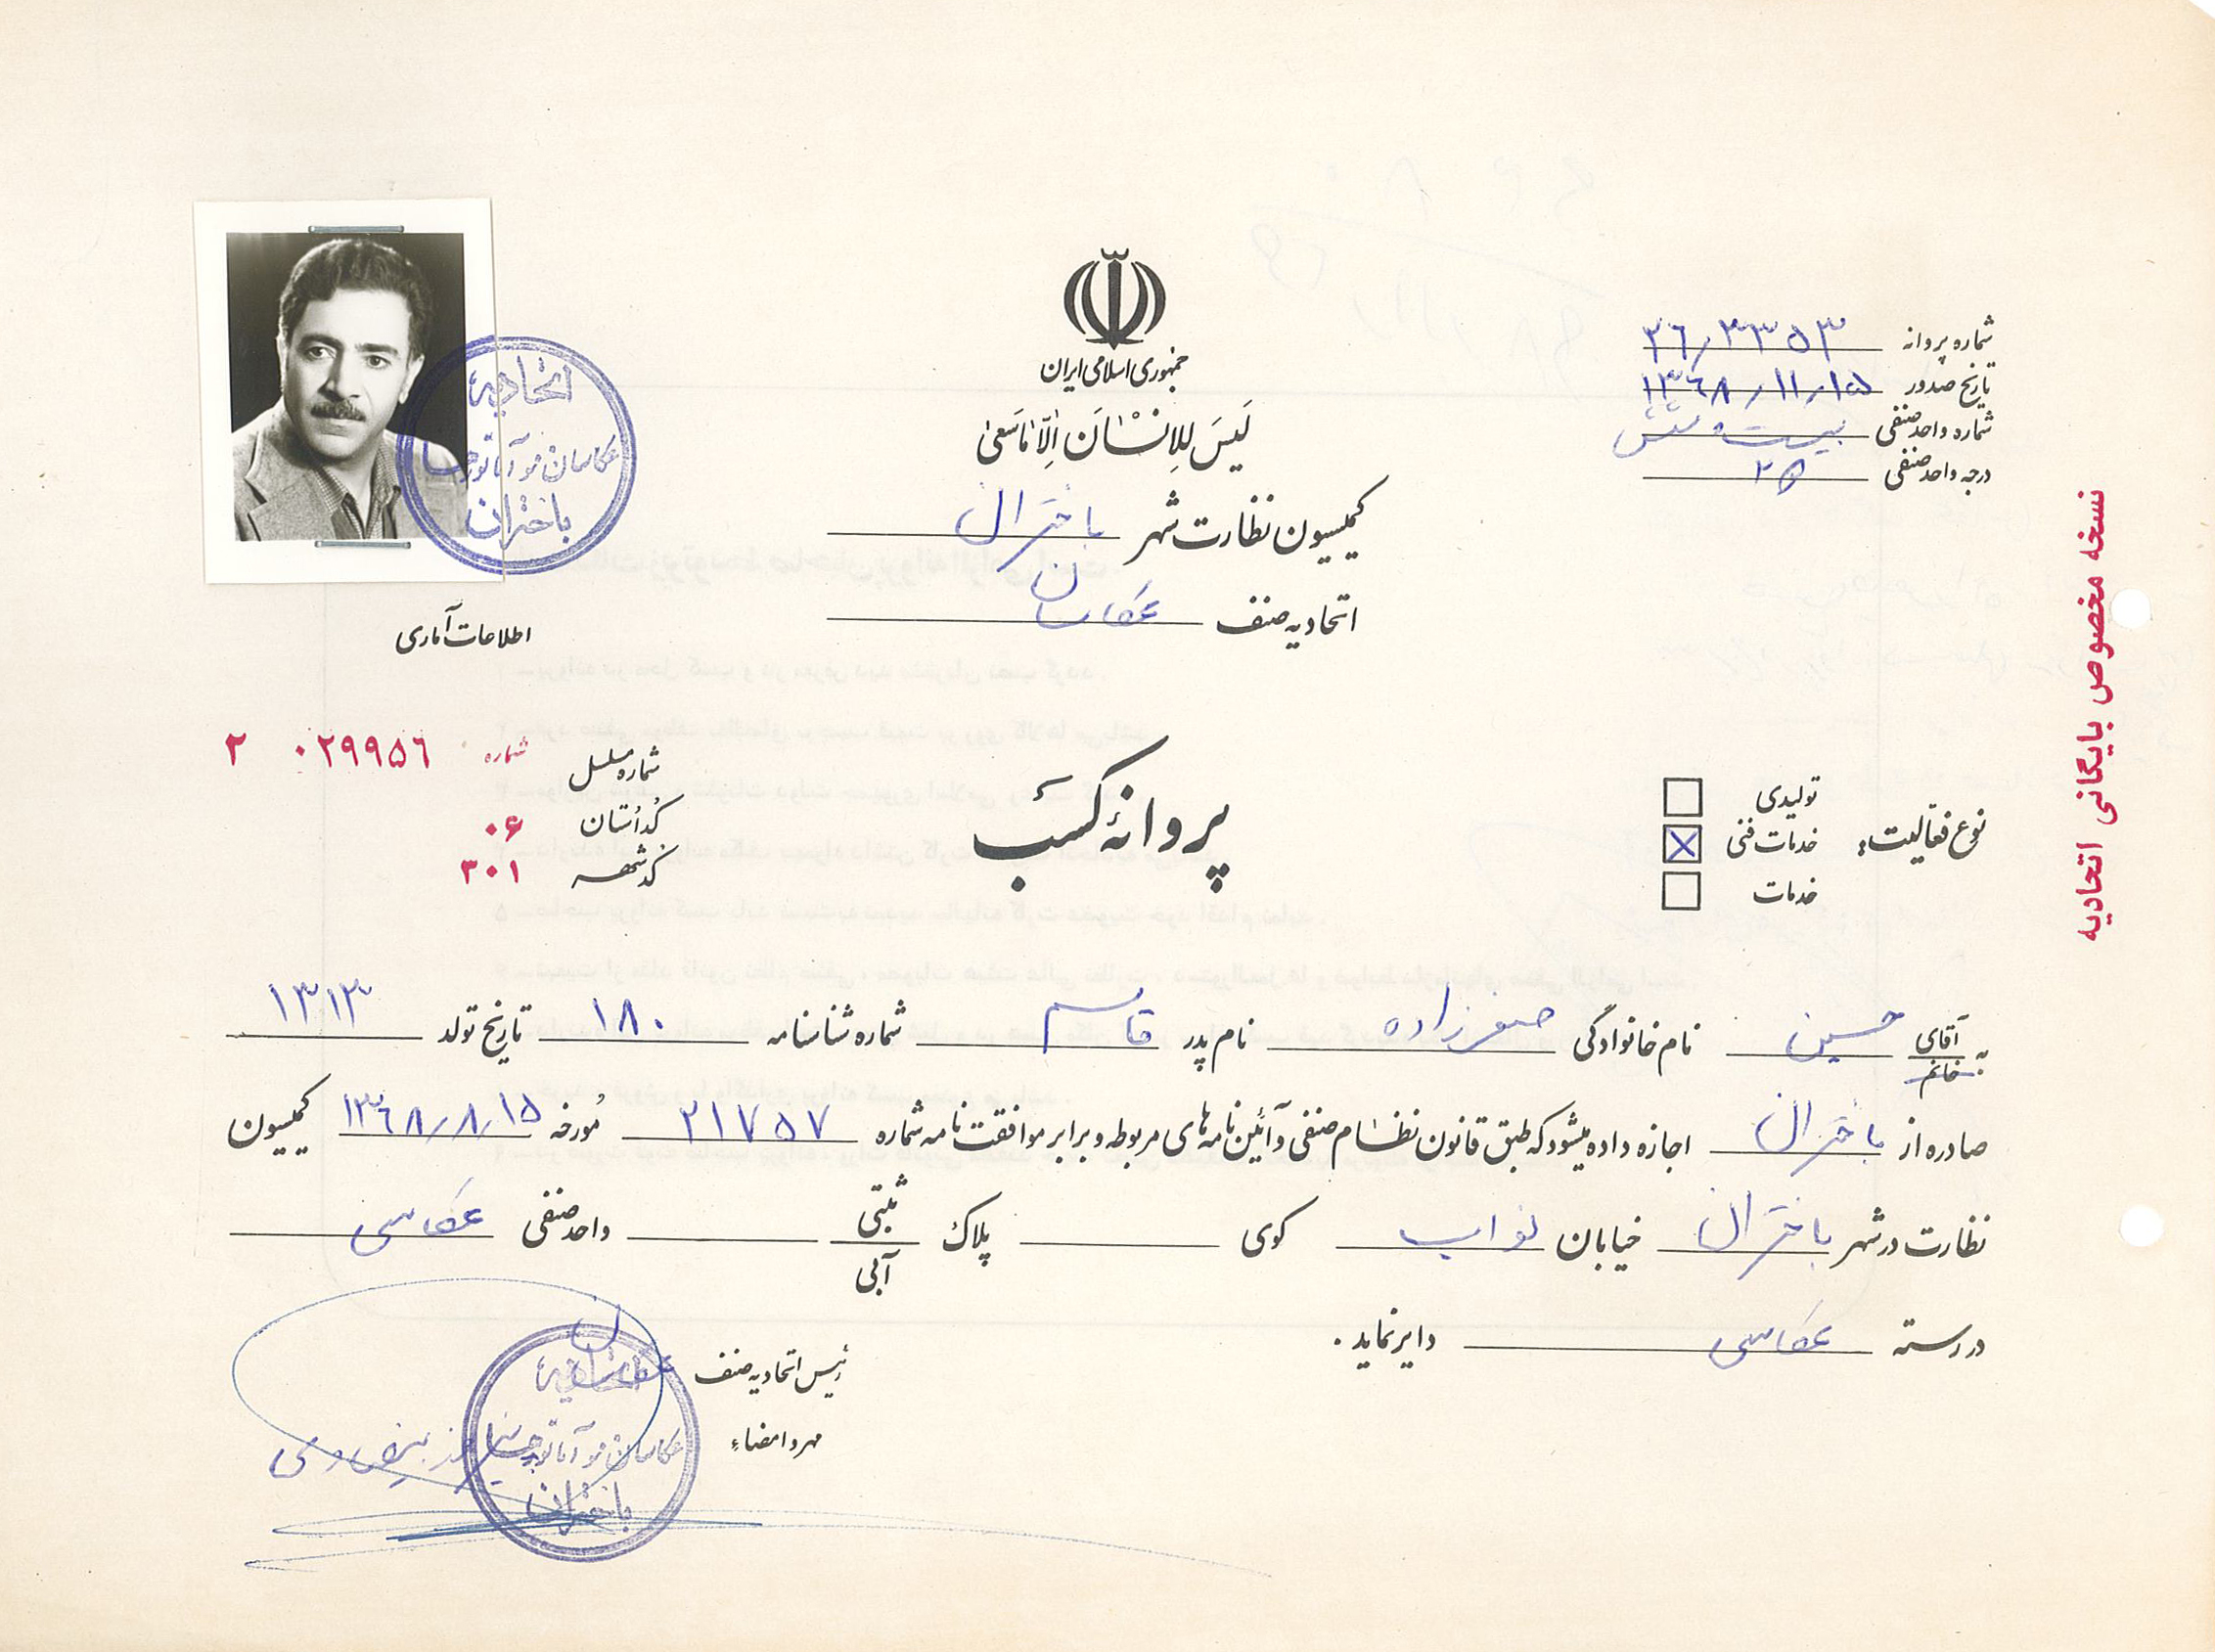 جمهوری اسلامی ایران
لَیسَ لِلاِنْسٰانَ اِلّا مٰاسَعیٰ
کمیسیون نظارت شهر باختران
اتحادیه صنف عکاسان
شماره پروانه ۲۶/۳۳۵۳
تاریخ صدور ۱۳۶۸/۱۱/۱۵
شماره واحد صنفی بیست و شش
درجه واحد صنفی ۲
نسخه مخصوص بایگانی اتحادیه
اتحادیه
عکاسان
باختران
اطلاعات آماری
شماره مسلسل شماره ۰۲۹۹۵۶ ۲
کد استان ۰۶
کد شهر ۳۰۱
پروانهٔ کسب
نوع فعالیت:
تولیدی
خدمات فنی
خدمات
به آقای خانم حسین نام خانوادگی صفرزاده نام پدر قاسم شماره شناسنامه ۱۸۰ تاریخ تولد ۱۳۱۳
صادره از باختران اجازه داده میشود که طبق قانون نظام صنفی و آئین نامه های مربوطه و برابر موافقت نامه شماره ۲۱۷۵۷ مورخه ۱۳۶۸/۸/۱۵ کمیسیون
نظارت در شهر باختران خیابان نواب کوی پلاک ثبتی آبی واحد صنفی عکاسی
در رسته عکاسی دایر نماید .
رئیس اتحادیه صنف عکاسان
مهر و امضاء
اتحادیه
عکاسان
باختران